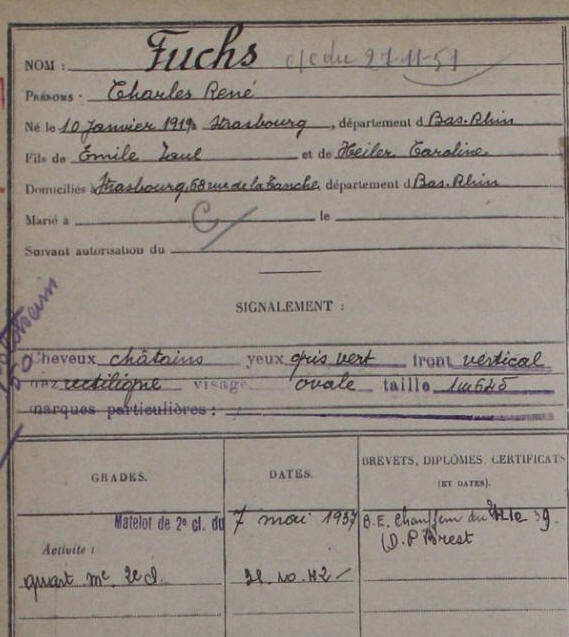 NOM : Fuchs c/c du 27-11-51
PRÉNOMS : Charles René
Né le 10 Janvier 1919 à Strasbourg, département d Bas-Rhin
Fils de Emile Paul et de Heiler Caroline
Domiciliés à Strasbourg, 68 rue de la Ganche, département d Bas-Rhin
Marié à C/ le
Suivant autorisation du
SIGNALEMENT :
Cheveux châtains yeux gris vert front vertical
nez rectiligne visage ovale taille 1m645
marques particulières : /
GRADES. DATES. BREVETS, DIPLÔMES, CERTIFICATS
(ET DATES).
Matelot de 2e cl. du 7 mai 1937 B.E. Chauffeur du 39.
D.P Brest
Activité :
quart. me 2e cl. 42